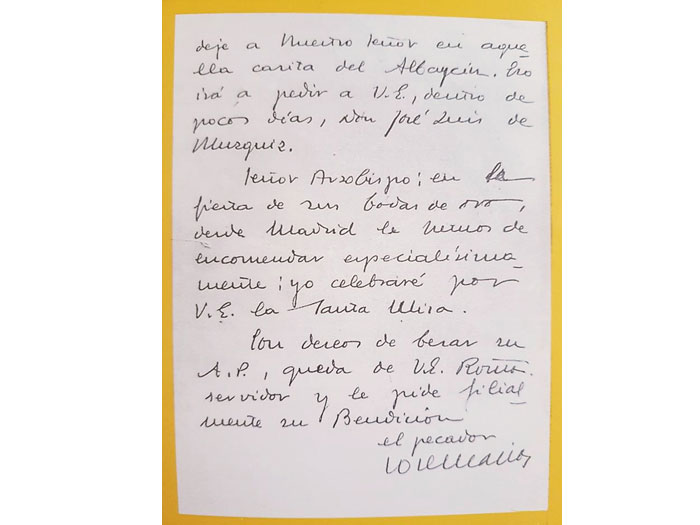 deje a Nuestro Señor en aque-
lla casita del Albaycín. Eso
irá a pedir a V.E., dentro de
pocos días, Don José Luis de
Muzquiz.
Señor Arzobispo: en la
fiesta de sus bodas de oro,
desde Madrid le hemos de
encomendar especialísima-
mente; yo celebraré por
V.E. la Santa Misa.
Con deseos de besar su
A.P., queda de V.E. Rvma.
servidor y le pide filial-
mente su Bendición
el pecador
Josemaría